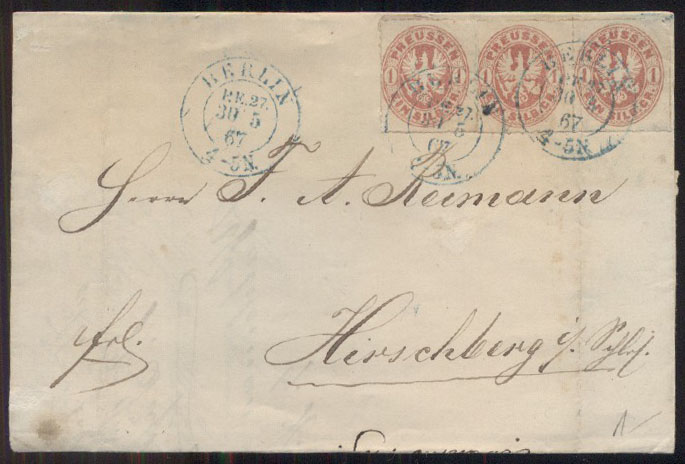 BERLIN
P.E.27.
30 5
67
4-5N.
PREUSSEN
1 1
EIN SILB.GR.
PREUSSEN
1
SILB.GR.
PREUSSEN
1
SILB.GR.
BERLIN
67
-5N.
Herrn F. A. Reimann
frl.
Hirschberg i/. Schles.